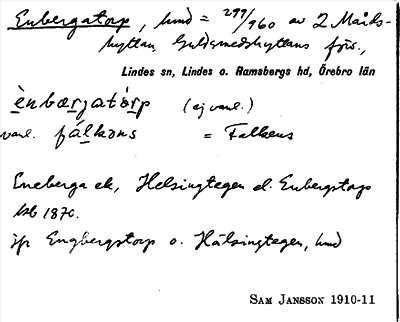 Enbergatorp, hmd = 299/960 av 2 Mårds-
hyttan, Guldsmedshyttans förs.,
Lindes sn, Lindes o. Ramsbergs hd, Örebro län
ènbærjatórp (ej vanl.)
vanl. fálkəns = Falkens
Eneberga ek, Helsingtegen el. Enbergstorp
1870.
jfr Engbergstorp o. Hälsingtegen, hmd
SAM JANSSON 1910-11